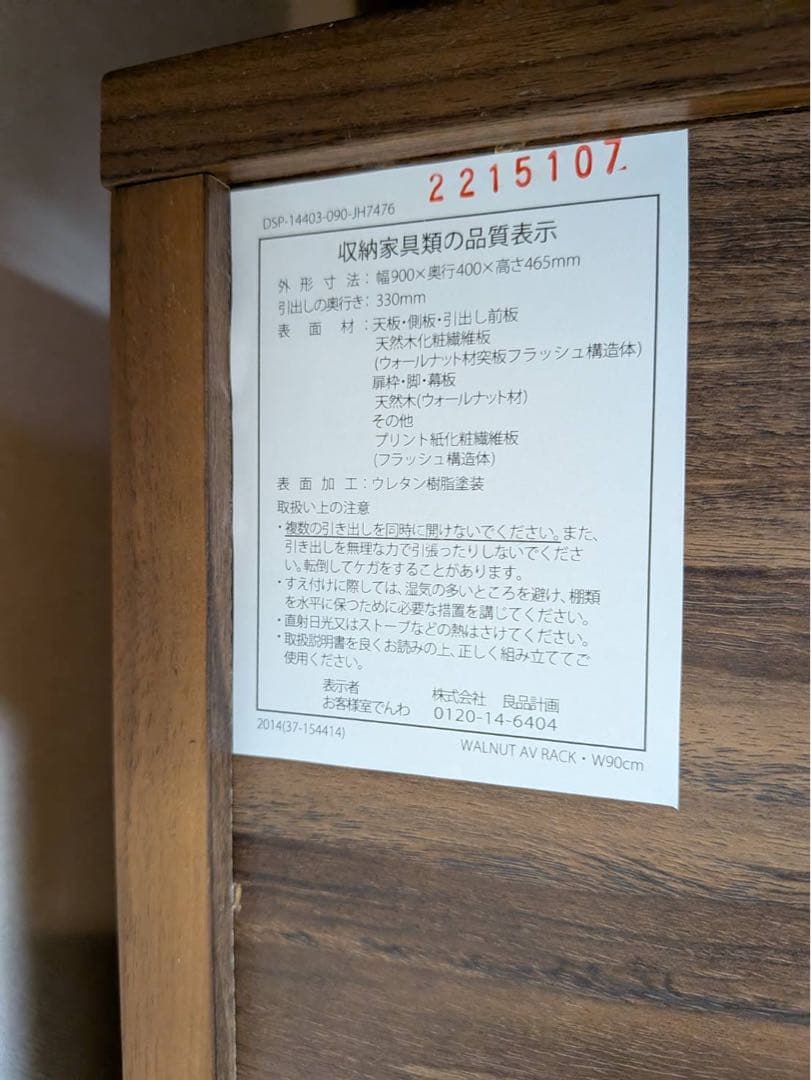 2215107
DSP-14403-090-JH7476
収納家具類の品質表示
外形寸法：幅900×奥行400×高さ465mm
引出しの奥行き：330mm
表面材：天板・側板・引出し前板
天然木化粧繊維板
(ウォールナット材突板フラッシュ構造体)
扉枠・脚・幕板
天然木(ウォールナット材)
その他
プリント紙化粧繊維板
(フラッシュ構造体)
表面加工：ウレタン樹脂塗装
取扱い上の注意
・複数の引き出しを同時に開けないでください。また、
引き出しを無理な力で引張ったりしないでくださ
い。転倒してケガをすることがあります。
・すえ付けに際しては、湿気の多いところを避け、棚類
を水平に保つために必要な措置を講じてください。
・直射日光又はストーブなどの熱はさけてください。
・取扱説明書を良くお読みの上、正しく組み立ててご
使用ください。
表示者 株式会社 良品計画
お客様室でんわ 0120-14-6404
2014(37-154414)
WALNUT AV RACK・W90cm